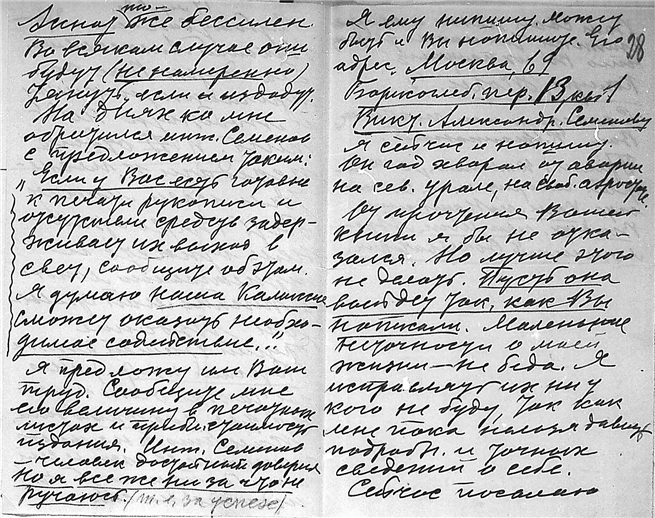 то-
же бессилен.
Во всяком случае они
будут (не намеренно)
тянуть, если и издадут.
На днях ко мне
обратился инж. Семенов
с предложением таким:
"Если у Вас есть готовые
к печати рукописи и
отсутствие средств задер-
живает их выход в
свет, сообщите об этом.
Я думаю наша
сможет оказать необхо-
димое содействие."
Я предложу им Ваш
труд. Сообщите мне
его величину в печатных
листах и стоимость
издания. Инж. Семенов
человек достойный доверия
но я все же ни за что не
ручаюсь. (т.е. за успех)
Я ему напишу. Может
быть и Вы напишете. Его
28
адрес. Москва, 69
Борисоглеб. пер. 13 кв 1
Викт. Александр. Семенову
Я сейчас и напишу.
Он год хворал от аварии
на сев. урале, на
От прочтения Вашей
книги я бы не отка-
зался. Но лучше этого
не делать. Пусть она
выйдет так, как Вы
написали. Маленькие
неточности о моей
жизни — не беда. Я
исправлять их ни у
кого не буду, так как
мне пока нельзя давать
подробн. и точных
сведений о себе.
Сейчас посылаю